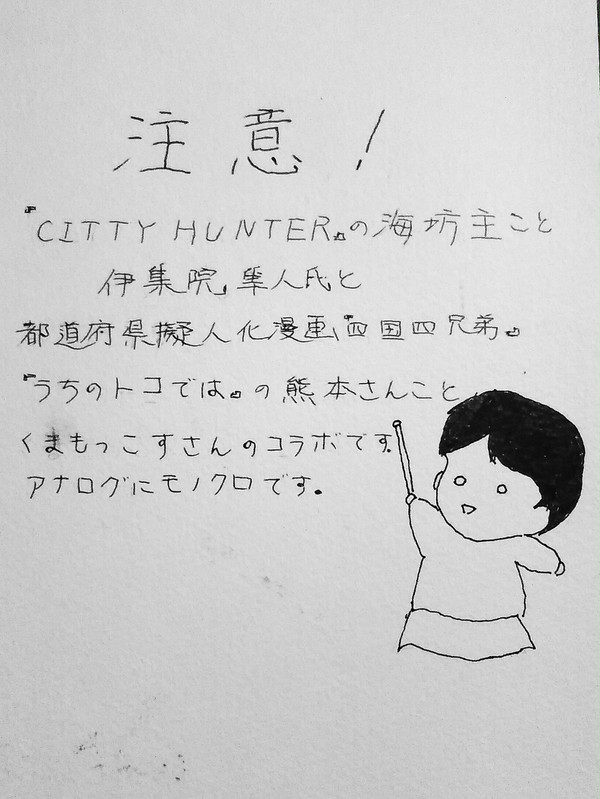 注意!
『CITTY HUNTER』の海坊主こと
伊集院隼人氏と
都道府県擬人化漫画『四国四兄弟』
『うちのトコでは』の熊本さんこと
くまもっこすさんのコラボです
アナログにモノクロです。